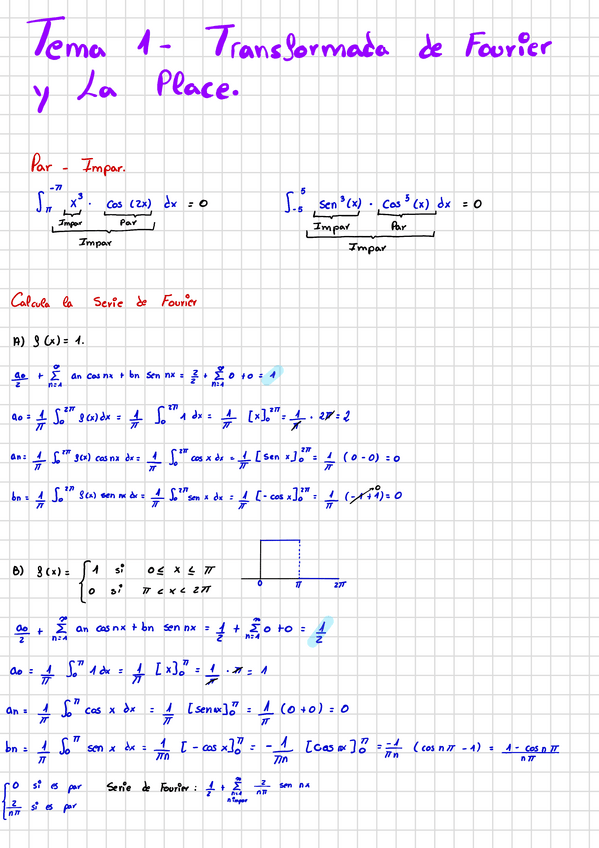 Tema 1- Transformada de Fourier
y La Place.
Par - Impar.
∫_π^-π x³ · cos (2x) dx = 0
∫_-5^5 sen³(x) · cos⁵(x) dx = 0
Impar Par
Impar Par
Impar
Impar
Calcula la serie de Fourier
A) f(x) = 1.
a0/2 + ∑_{n=1}^∞ an cos nx + bn sen nx = 2/2 + ∑_{n=1}^∞ 0 + 0 = 1
a0 = 1/π ∫_0^2π f(x) dx = 1/π ∫_0^2π 1 dx = 1/π [x]_0^2π = 1/π · 2π = 2
an = 1/π ∫_0^2π f(x) cosnx dx = 1/π ∫_0^2π cos x dx = 1/π [sen x]_0^2π = 1/π (0-0) = 0
bn = 1/π ∫_0^2π f(x) sen nx dx = 1/π ∫_0^2π sen x dx = 1/π [-cos x]_0^2π = 1/π (-1+1)⁰ = 0
B) f(x) = { 1 si 0 ≤ x ≤ π
0 si π < x < 2π
0 π 2π
a0/2 + ∑_{n=1}^∞ an cos nx + bn sen nx = 1/2 + ∑_{n=1}^∞ 0 + 0 = 1/2
a0 = 1/π ∫_0^π 1 dx = 1/π [x]_0^π = 1/π · π = 1
an = 1/π ∫_0^π cos x dx = 1/π [sen x]_0^π = 1/π (0+0) = 0
bn = 1/π ∫_0^π sen x dx = 1/πn [-cos x]_0^π = -1/πn [cos nx]_0^π = -1/πn (cos nπ - 1) = 1 - cos nπ/nπ
{ 0 si es par
2/nπ si es par
Serie de Fourier: 1/2 + ∑_{n=1, n impar}^∞ 2/nπ sen nx